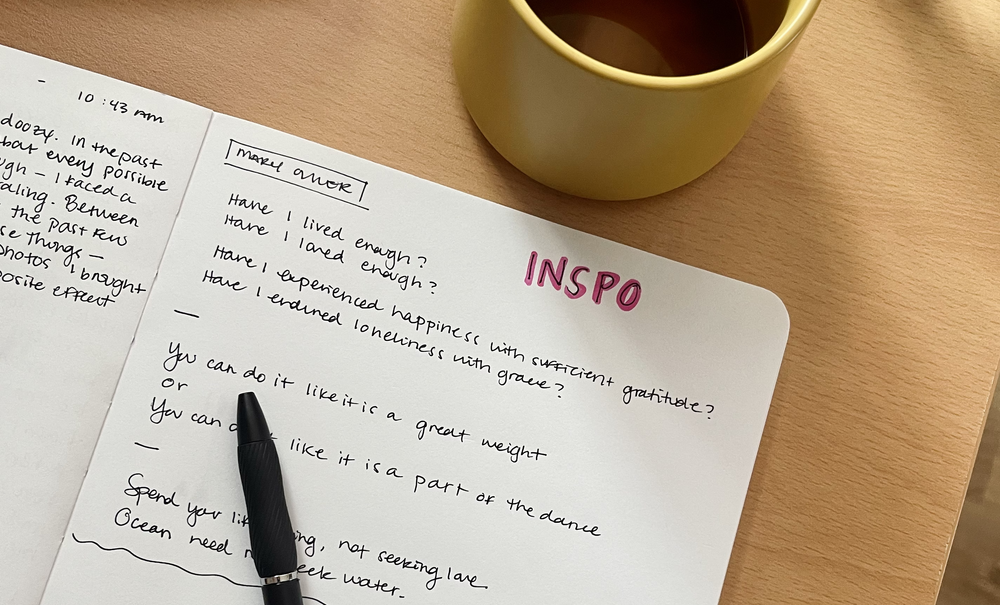 10:43 am
doozy. In the past
but every possible
ugh – I faced a
aling. Between
the past few
se things –
photos I brought
posite effect
MARY OLIVER
INSPO
Have I lived enough?
Have I loved enough?
Have I experienced happiness with sufficient gratitude?
Have I endured loneliness with grace?
—
You can do it like it is a great weight
or
You can d t like it is a part of the dance
—
Spend your li ing, not seeking love
Ocean need n eek water.